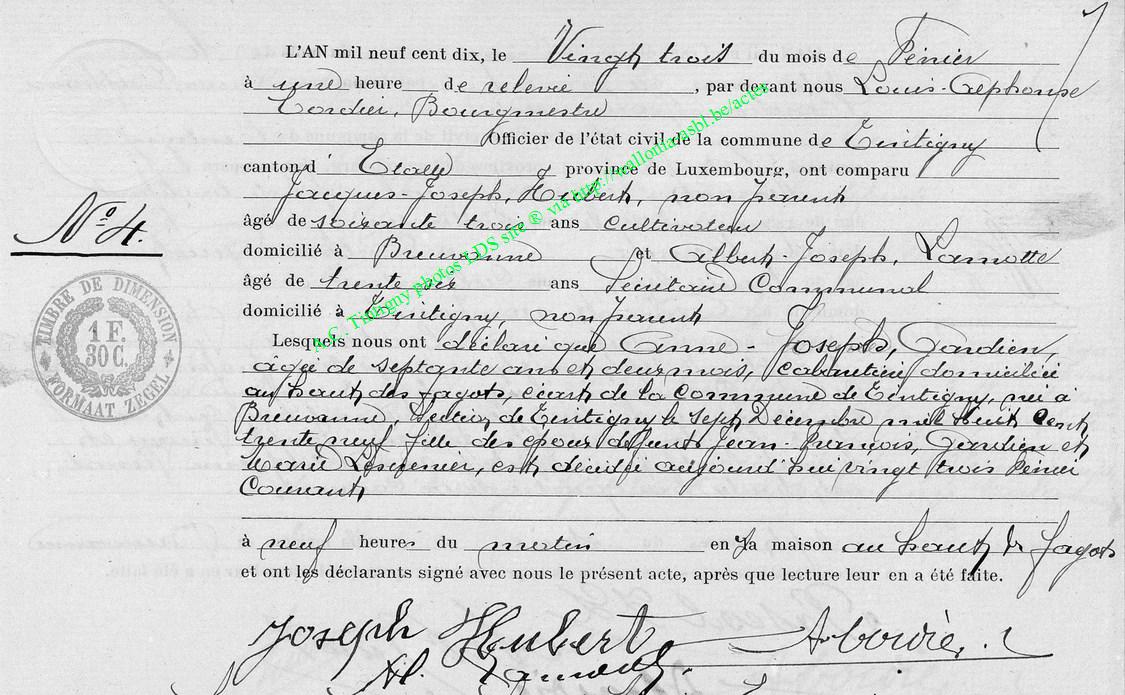 L'AN mil neuf cent dix, le Vingt trois du mois de Février
à une heure de relevée, par devant nous Louis-Alphonse
Cordier, Bourgmestre
Officier de l'état civil de la commune de Tintigny
canton d'Etalle province de Luxembourg, ont comparu
Jacques-Joseph, Hubert, non parent
âgé de soixante trois ans cultivateur
domicilié à Breuvanne et Albert-Joseph, Lamotte
âgé de trente six ans Secrétaire Communal
domicilié à Tintigny, non parent
Lesquels nous ont déclaré que Anne-Joseph, Gardien,
âgée de septante ans et deux mois, cabaretière domiciliée
au haut des fagots, écart de la Commune de Tintigny, née à
Breuvanne, section de Tintigny le sept Décembre mil huit cent
trente neuf fille des époux défunts Jean-François, Gardien et
Marie, est décédée aujourd'hui vingt trois Février
Courant
à neuf heures du matin en la maison au haut des fagots
et ont les déclarants signé avec nous le présent acte, après que lecture leur en a été faite.
Joseph Hubert
N° 4.
TIMBRE DE DIMENSION
1 F.
30 C.
FORMAAT ZEGEL
A.C. Tintigny photos LDS site ® via http://wallonia.asbl.be/actes